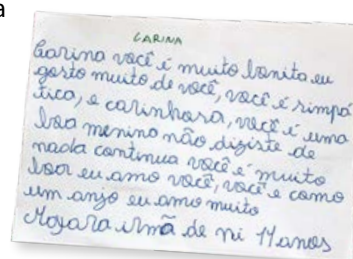 a
CARINA
Carina você é muito bonita eu
gosto muito de você, você é simpá
tica, e carinhosa, você é uma
boa menina não diziste de
nada continua você é muito
boa eu amo você, você e como
um anjo eu amo muito
irmã de ni 11 anos